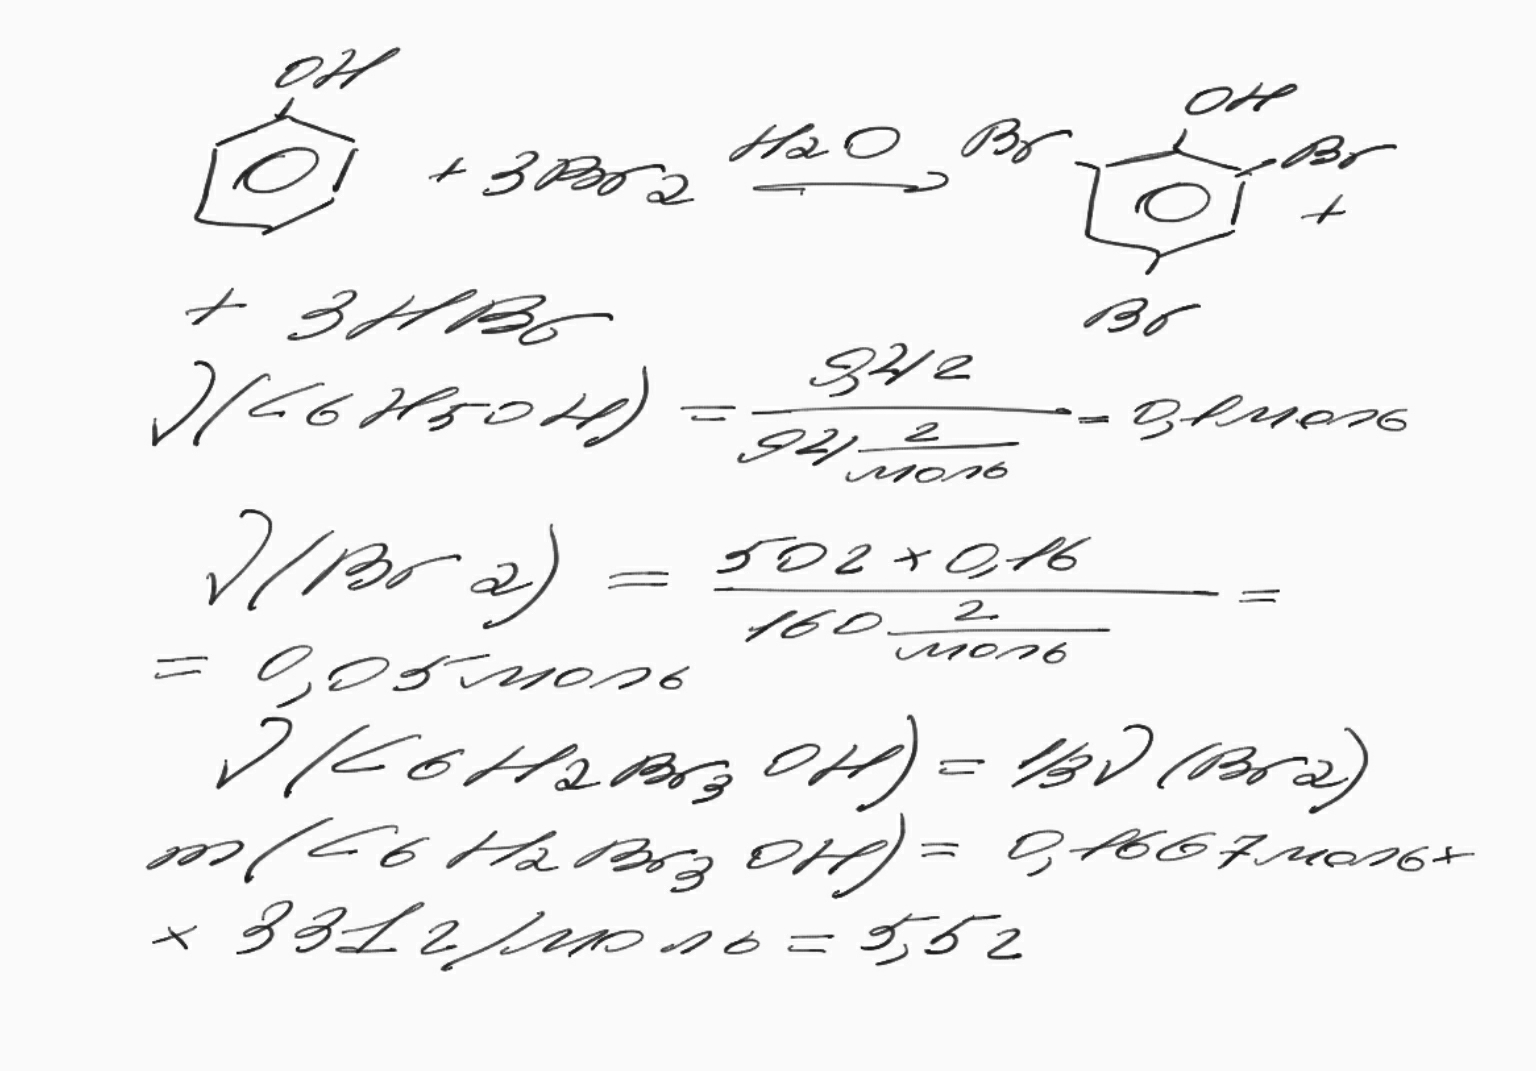 OH
+ 3Br2 H2O Br OH Br +
Br
+ 3HBr
ν(C6H5OH) = 9,4г / 94 г/моль = 0,1моль
ν(Br2) = 50г × 0,16 / 160 г/моль =
= 0,05моль
ν(C6H2Br3OH) = 1/3ν(Br2)
m(C6H2Br3OH) = 0,1667моль×
× 331г/моль = 5,5г